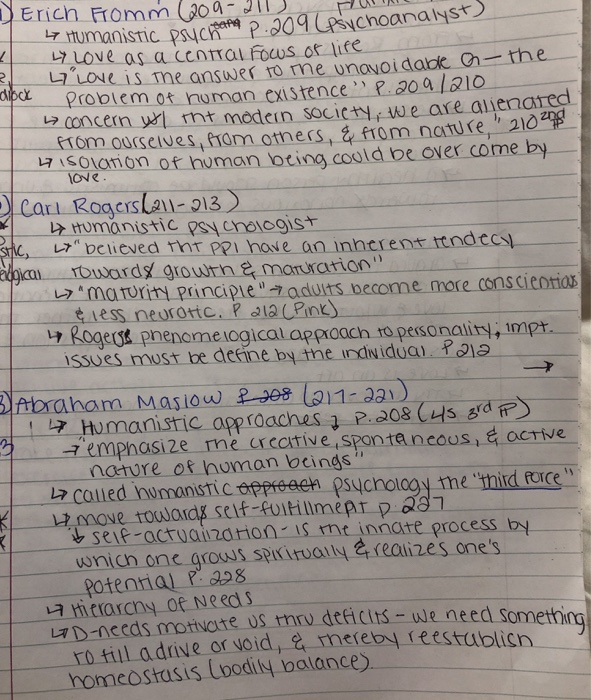 1) Erich Fromm (209-211)
↳ Humanistic psych P.209 (Psychoanalyst)
↳ Love as a central focus of life
↳ "Love is the answer to the unavoidable - the
problem of human existence" P. 209/210
↳ concern w/ tht modern society, we are alienated
from ourselves, from others, & from nature," 210 2nd
↳ isolation of human being could be over come by
love.
2) Carl Rogers (211-213)
↳ Humanistic psychologist
↳ "believed tht ppl have an inherent tendecy
towards growth & maturation"
↳ "maturity principle" → adults become more conscientias
& less neurotic. P 212 (Pink)
↳ Rogers phenomelogical approach to personality; impt.
issues must be define by the individual. P212
→
3) Abraham Maslow P 208 (217-221)
! ↳ Humanistic approaches ↓ P.208 (4s 3rd P)
3 → "emphasize the creative, spontaneous, & active
nature of human beings"
↳ called humanistic approach psychology the "third force"
↳ move towards self-fulfillment p 227
↓ self-actualization - is the innate process by
which one grows spiritually & realizes one's
potential P. 228
↳ Hierarchy of Needs
↳ D-needs motivate us thru deficits - we need something
to fill a drive or void, & thereby reestablish
homeostasis (bodily balance)